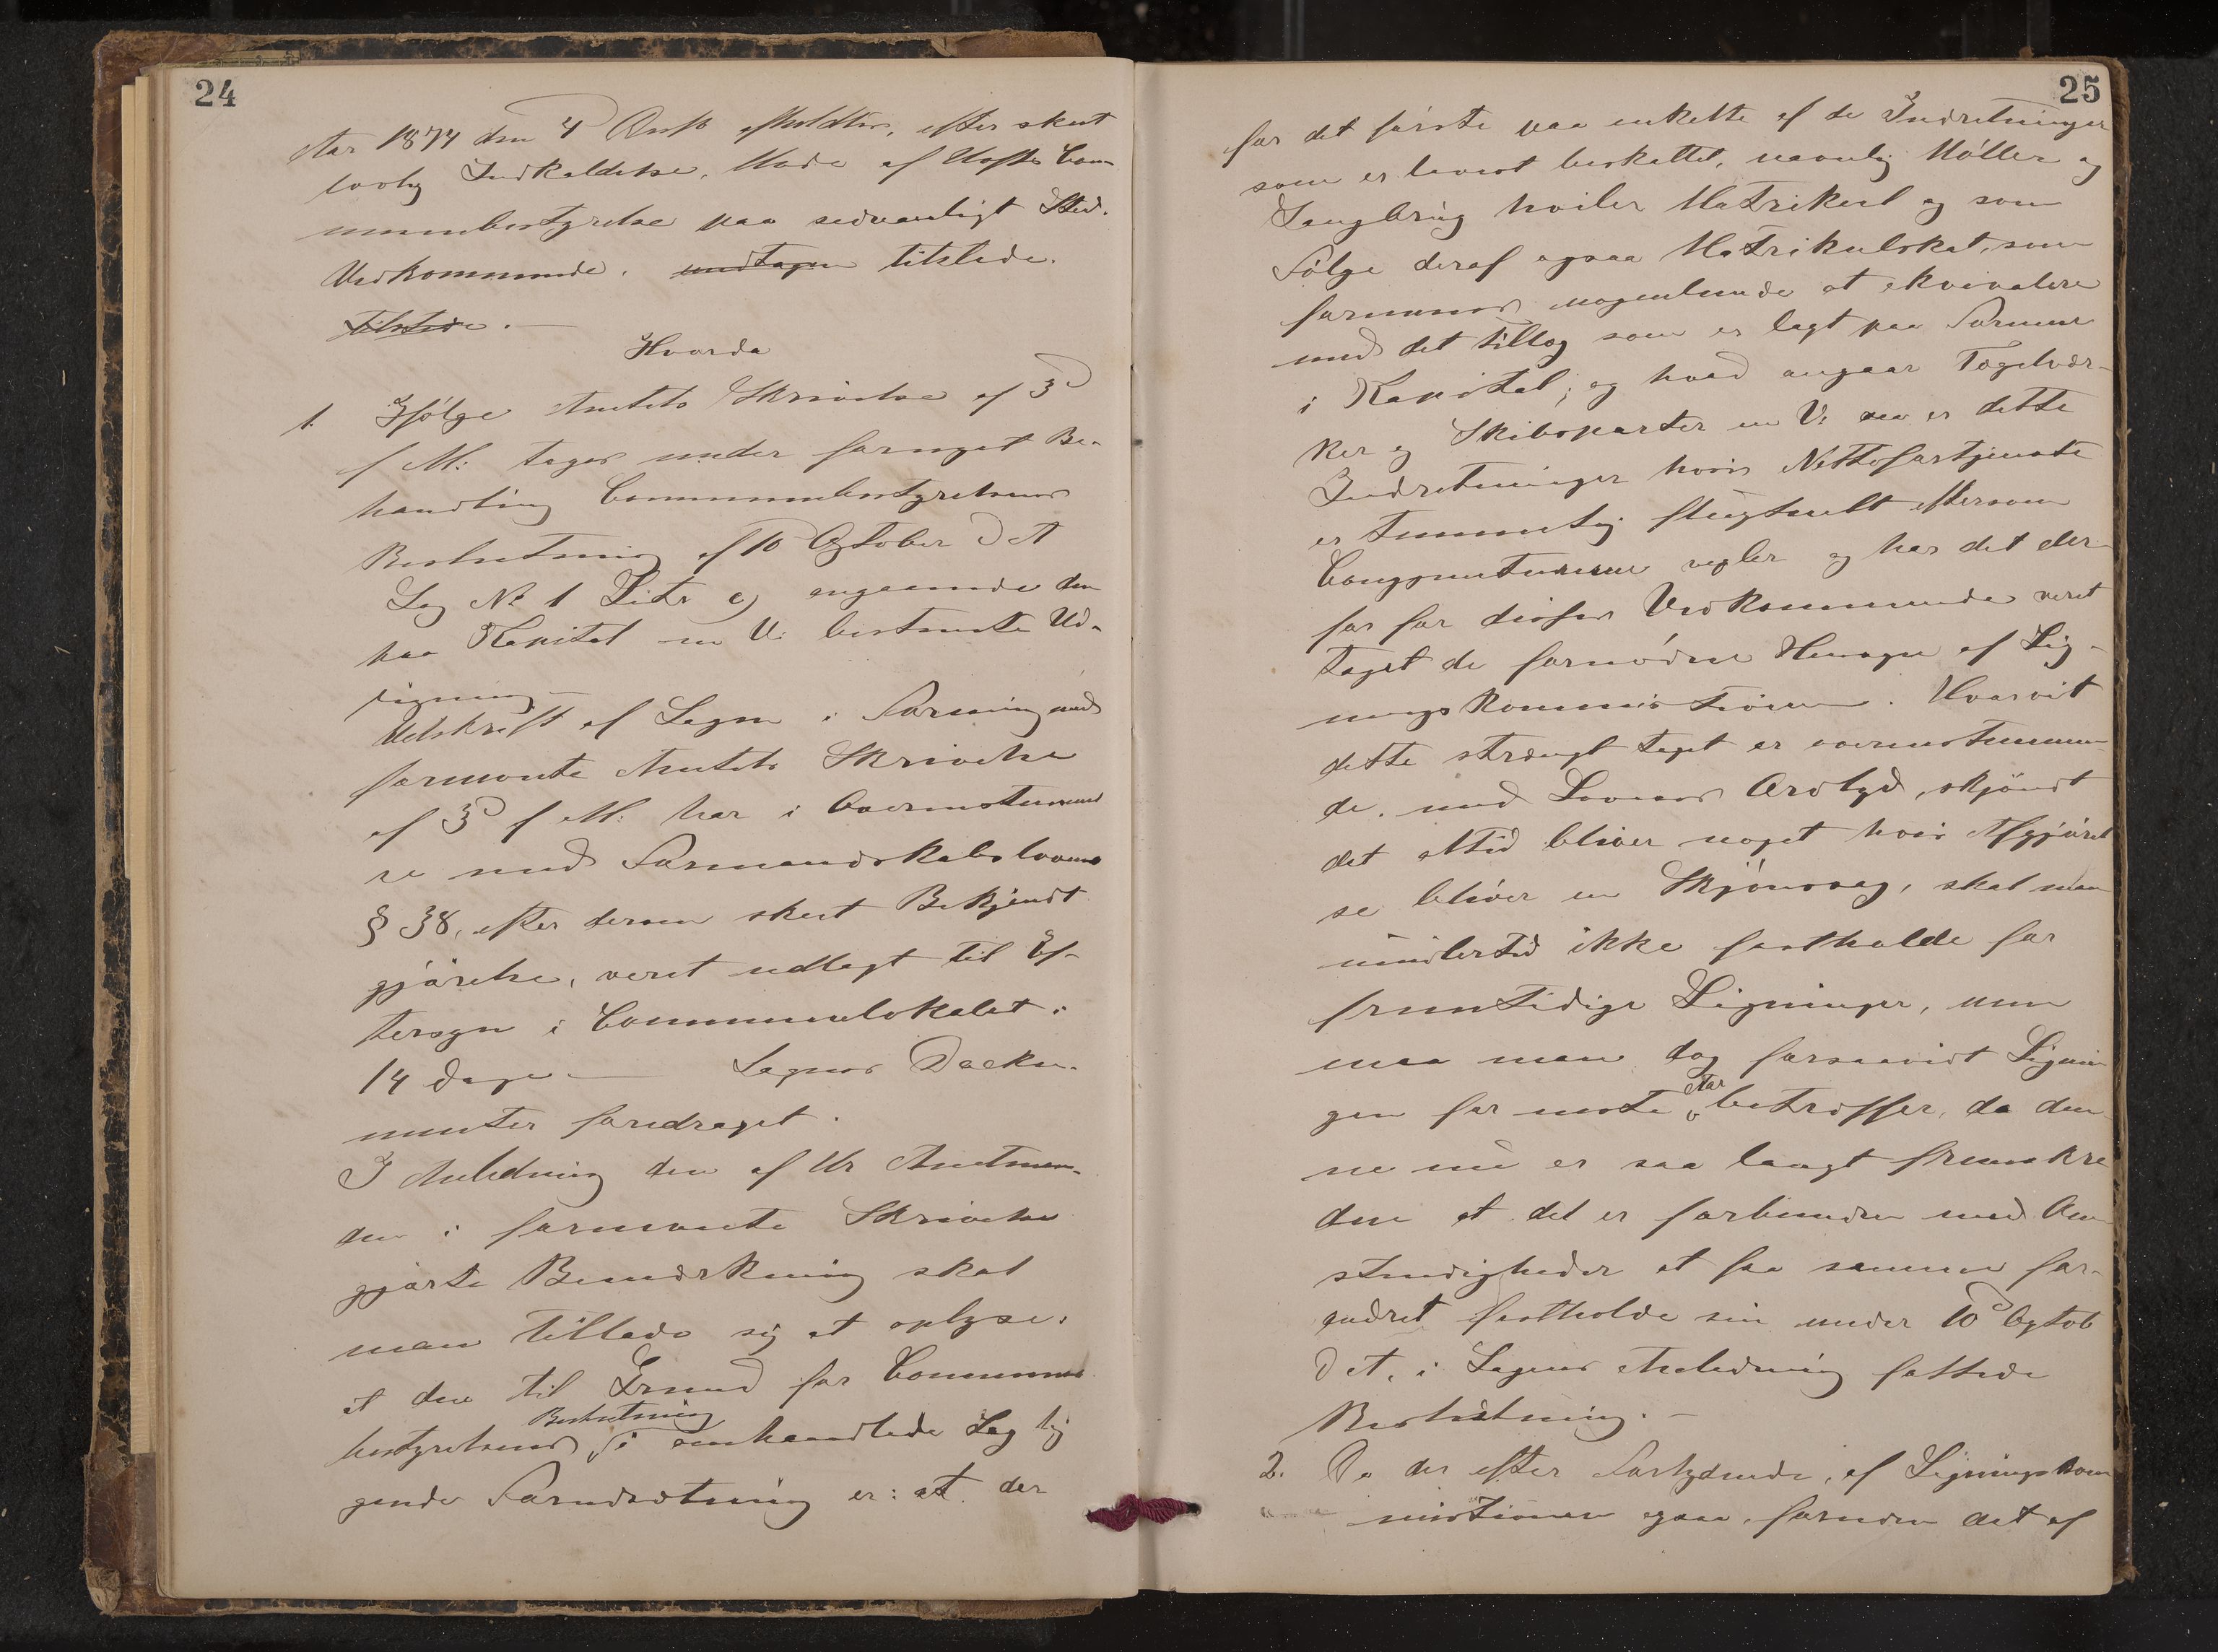 24
Aar 1874 den 4 afholdtes, efter skeet
lovlig Indkaldelse, Møde af Com-
munebestyrelse paa sedvanligt Sted.
Vedkommende. undtagen tilstede.
tilstede. —
Hvorda
1. Ifølge Amtets Skrivelse af 3d
f M: toges under fornyet Be-
handling Communebestyrelsens
Beslutning af 10 Oktober d A
Sag No 1 Litr c) angaaende den
paa Kapital m V. bestemte Ud-
ligning —
Udskrift af Sagen i Forening med
formente Amtets Skrivelse
af 3d f M: har i Overenstemmel
se med Formandskabslovens
§ 38, efter derom skeet Bekjendt
gjørelse, veret udlagt til Ef-
tersyn i Communelokalet i
14 dage — Sagens Docku-
menter foredraget.
I Anledning den af Hr Amtman-
den i formente Skrivelse
gjorte Bemærkning skal
man tillade sig at oplyse:
at den til Grund for Commune
Beslutning
bestyrelsens i omhandlede Sag lig
gende Forudsetning er: at der
25
for det første paa enkelte af de Indretninger
som er bleven beskattet, navnlig Møller og
Saugbrug hviler Matrikul og som
Følge deraf ogsaa Matrikulskat, som
formenes nogenlunde at ekvivalere
med det tillæg som er lagt paa Formue
i Kapital; og hvad angaar Tegelvær-
ker og Skibsparter m V. saa er dette
Indretninger hvis Nettofortjeneste
er temmelig eftersom
Conjunkturerne vexler og har det der
for for disses Vedkommende veret
taget de fornødne Hensyn af Lig-
ningskommisionen. Hvorvit
dette strængt taget er overenstemmen-
de. med Lovens Ordlyd, skjøndt
det altid bliver noget hvis Afgjørel
se bliver en Skjønssag, skal man
imidlertid ikke fastholde for
fremtidige Ligninger, men
maa man dog forsaavidt Lignin
gen for neste Aar betreffer, da den
ne nu er saa langt fremskre
den at det er forbunden med Om
stendigheder at faa samme for-
andret fastholde sin under 10d Oktob
d A, i Sagens Anledning fattede
Beslutning. —
2. Da der efter Forlydende, af Ligningskom
misionen ogsaa, foruden det af